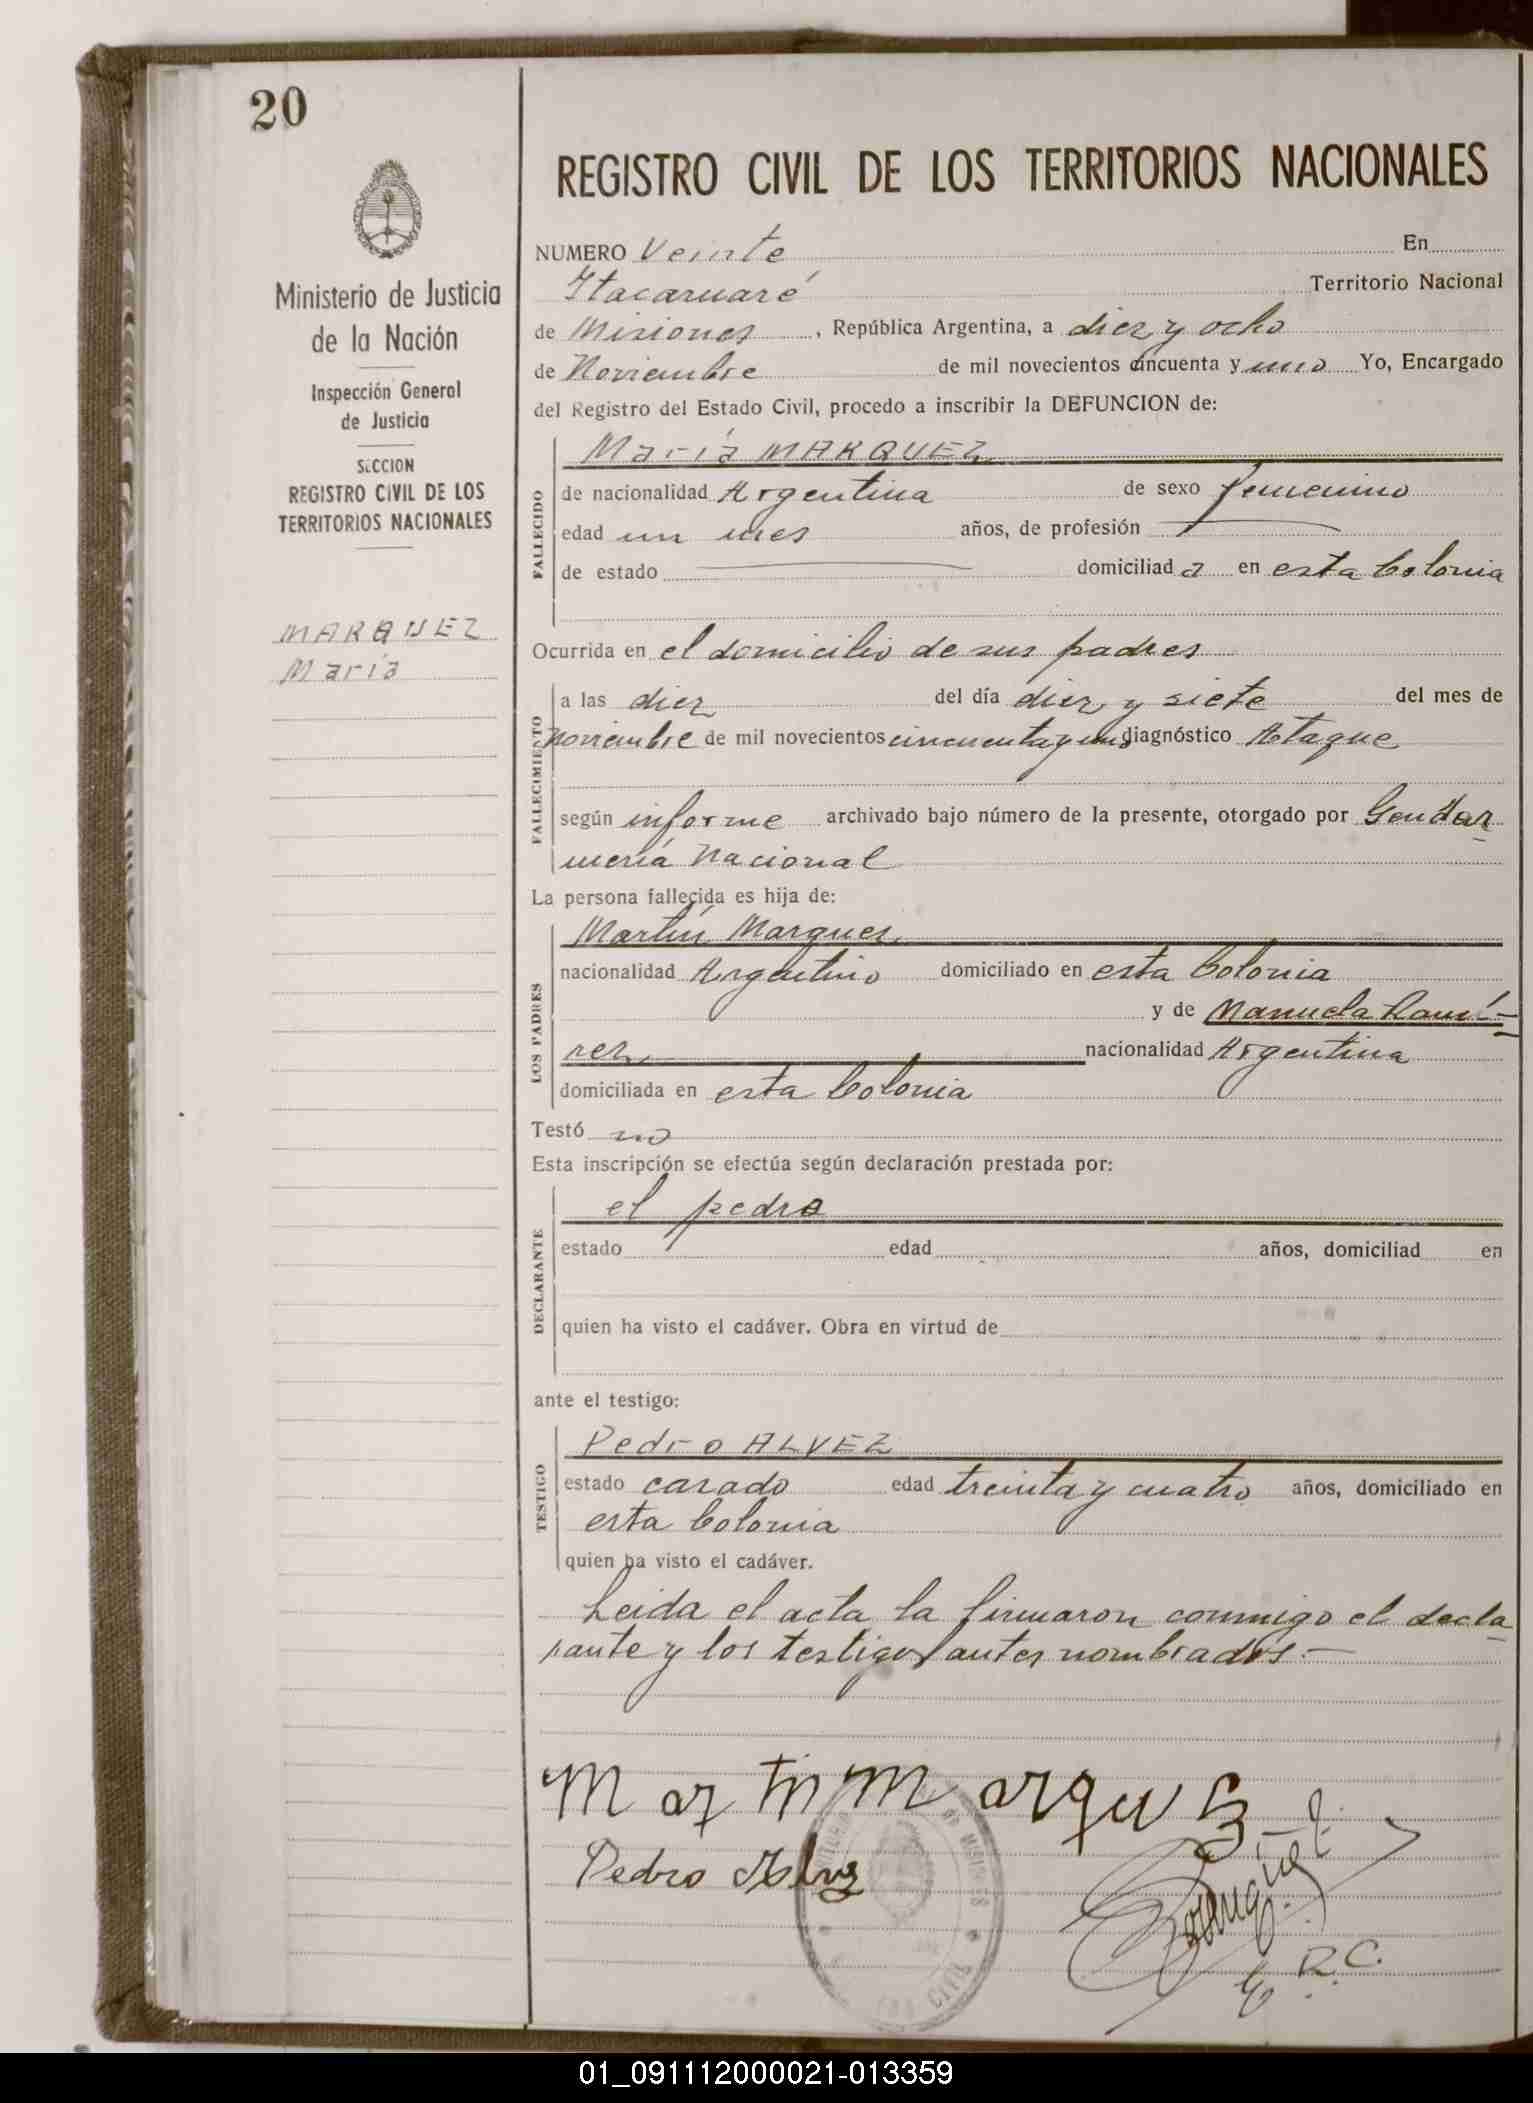 20
REGISTRO CIVIL DE LOS TERRITORIOS NACIONALES
Ministerio de Justicia
de la Nación
Inspección General
de Justicia
SECCION
REGISTRO CIVIL DE LOS
TERRITORIOS NACIONALES
MARQUEZ
María
NUMERO Veinte En
Itacaruaré Territorio Nacional
de Misiones, República Argentina, a diez y ocho
de Noviembre de mil novecientos cincuenta y uno Yo, Encargado
del Registro del Estado Civil, procedo a inscribir la DEFUNCION de:
María MARQUEZ
FALLECIDO
de nacionalidad Argentina de sexo femenino
edad un mes años, de profesión
de estado domiciliada en esta Colonia
Ocurrida en el domicilio de sus padres
FALLECIMIENTO
a las diez del día diez y siete del mes de
Noviembre de mil novecientos cincuenta y uno diagnóstico Ataque
según informe archivado bajo número de la presente, otorgado por Gendar
mería Nacional
La persona fallecida es hija de:
LOS PADRES
Martín Marquez
nacionalidad Argentino domiciliado en esta Colonia
y de Manuela Ramí-
rez nacionalidad Argentina
domiciliada en esta Colonia
Testó no
Esta inscripción se efectúa según declaración prestada por:
DECLARANTE
el pedre
estado edad años, domiciliad en
quien ha visto el cadáver. Obra en virtud de
ante el testigo:
TESTIGO
Pedro ALVEZ
estado casado edad treinta y cuatro años, domiciliado en
esta Colonia
quien ha visto el cadáver.
Leida el acta la firmaron conmigo el decla
rante y los testigos antes nombrados.-
Martin Marquez
Pedro Alvez
E. R. C.
CIVIL
01_091112000021-013359